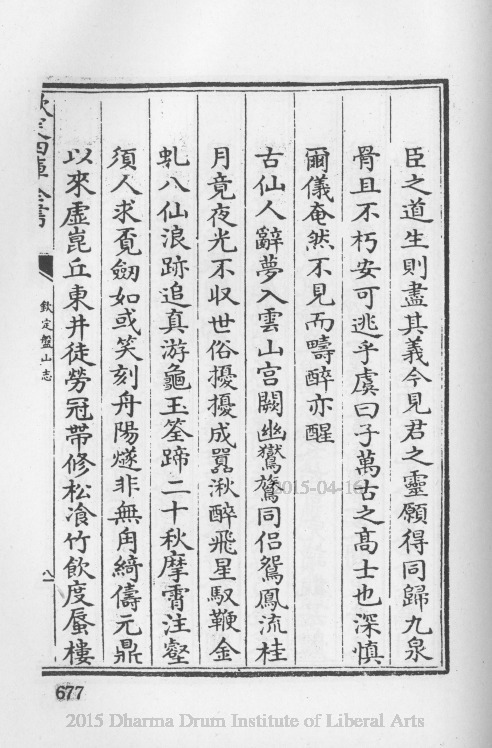 臣之道生則盡其義今見君之靈願得同歸九泉
骨且不朽安可逃乎虞曰子萬古之高士也深慎
爾儀奄然不見而疇醉亦醒
古仙人辭夢入雲山宫闕幽鸑鷟同侣鴛鳳流桂
月竟夜光不収世俗擾擾成嚣湫醉飛星馭鞭金
虬八仙浪跡追真游龜玉筌蹄二十秋摩霄注壑
須人求覔劒如或笑刻舟陽燧非無角綺儔元鼎
以來虚崑丘東井徒勞冠帶修松飡竹飲度蜃樓
欽定四庫全書
欽定盤山志
八
677
2015-04-16
2015 Dharma Drum Institute of Liberal Arts